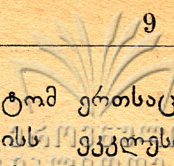 9
ტომ ერთსაც
ისს ეკკლეს